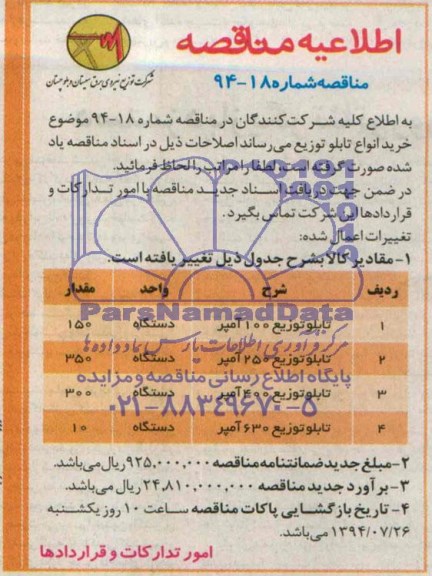 اطلاعیه مناقصه
مناقصه شماره ۱۸-۹۴
شرکت توزیع نیروی برق سیستان و بلوچستان
به اطلاع کلیه شرکت کنندگان در مناقصه شماره ۱۸-۹۴ موضوع
خرید انواع تابلو توزیع می رساند اصلاحات ذیل در اسناد مناقصه یاد
شده صورت گرفته است، لطفا مراتب را لحاظ فرمائید.
در ضمن جهت دریافت اسناد جدید مناقصه با امور تدارکات و
قراردادها این شرکت تماس بگیرد.
تغییرات اعمال شده:
۱- مقادیر کالا بشرح جدول ذیل تغییر یافته است.
ردیف شرح واحد مقدار
۱ تابلو توزیع ۱۰۰ آمپر دستگاه ۱۵۰
ParsNamadData
مرکز فرآوری اطلاعات پارس نماد داده ها
۲ تابلو توزیع ۲۵۰ آمپر دستگاه ۳۵۰
پایگاه اطلاع رسانی مناقصه و مزایده
۳ تابلو توزیع ۴۰۰ آمپر دستگاه ۳۰۰
۰۲۱-۸۸۳۴۹۶۷۰-۵
۴ تابلو توزیع ۶۳۰ آمپر دستگاه ۱۰
۲- مبلغ جدید ضمانتنامه مناقصه ۹۲۵,۰۰۰,۰۰۰ ریال می باشد.
۳- برآورد جدید مناقصه ۲۴,۸۱۰,۰۰۰,۰۰۰ ریال می باشد.
۴- تاریخ بازگشایی پاکات مناقصه ساعت ۱۰ روز یکشنبه
۱۳۹۴/۰۷/۲۶ می باشد.
امور تدارکات و قراردادها